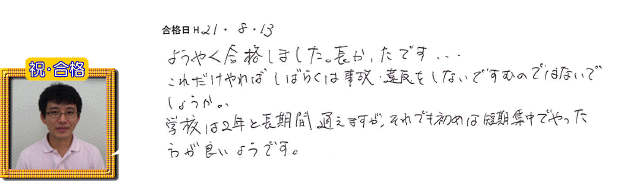 祝・合格
合格日 H 21・8・13
ようやく合格しました。長かったです...
これだけやればしばらくは事故・違反をしないですむのではないで
しょうか。
学校は2年と長期間通えますが、それでも初めは短期集中でやった
方が良いようです。